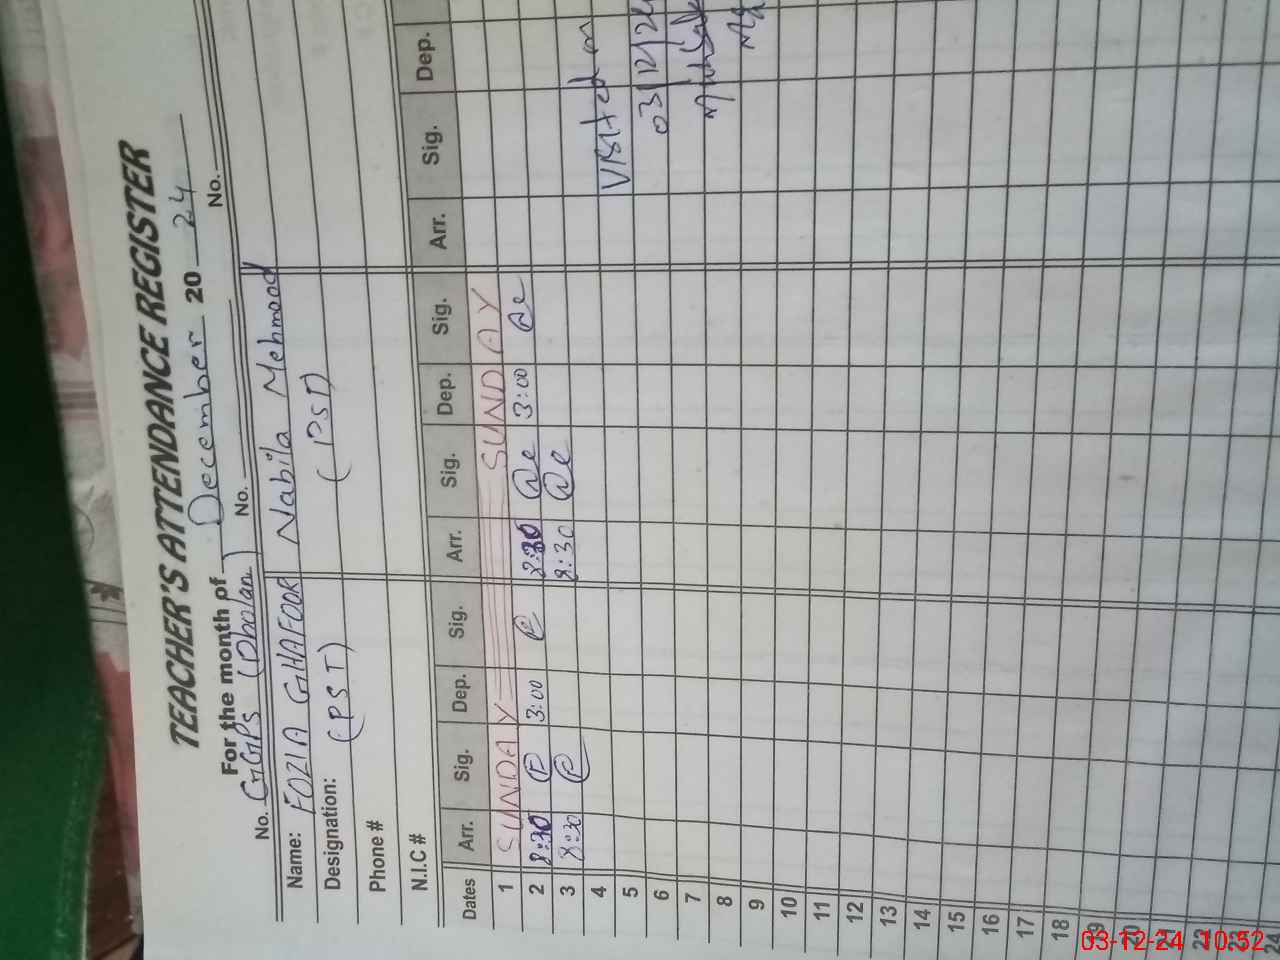 TEACHER'S ATTENDANCE REGISTER
For the month of December 2024
No. GGPS (Dholan) No. No.
Name: FOZIA GHAFOOR Nabila Mehmood
Designation: (PST) (PST)
Phone #
N.I.C #
Dates Arr. Sig. Dep. Sig. Arr. Sig. Dep. Sig. Arr. Sig. Dep.
1 SUNDAY SUNDAY
2 8:30 3:00 8:30 3:00
3 8:30 8:30
4 Visited on
5
6 03/12/24
7
8
9
10
11
12
13
14
15
16
17
18
19
20
21
22
23
24
03-12-24 10:52